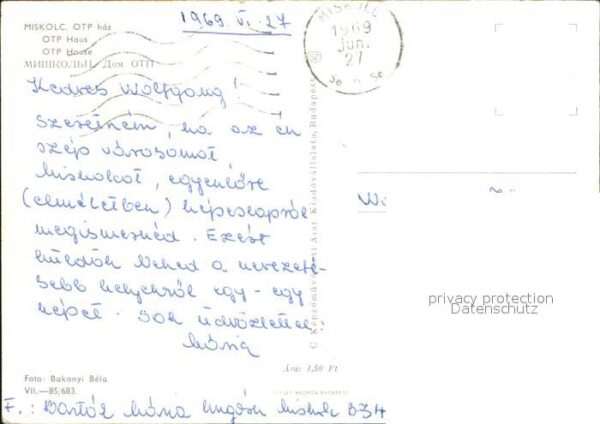 1969. VI. 27
MISKOLC. OTP ház
OTP Haus
OTP House
МИШКОЛЬЦ Дом ОТП
MISKOLC
1969
Jun.
27
Kedves Wolfgang!
Szeretném, ha az én
szép városomat,
Miskolcot, egyenlőre
(elméletben) képeslapról
megismernéd. Ezért
küldök Neked a nevezete-
sebb helyekről egy-egy
képet. Sok üdvözlettel:
Mária
Képzőművészeti Alap Kiadóvállalata, Budapest
Wi
privacy protection
Datenschutz
Ára: 1,50 Ft
Foto: Bakonyi Béla
VII.—85/683.
F.: Bartók Mária Miskolc